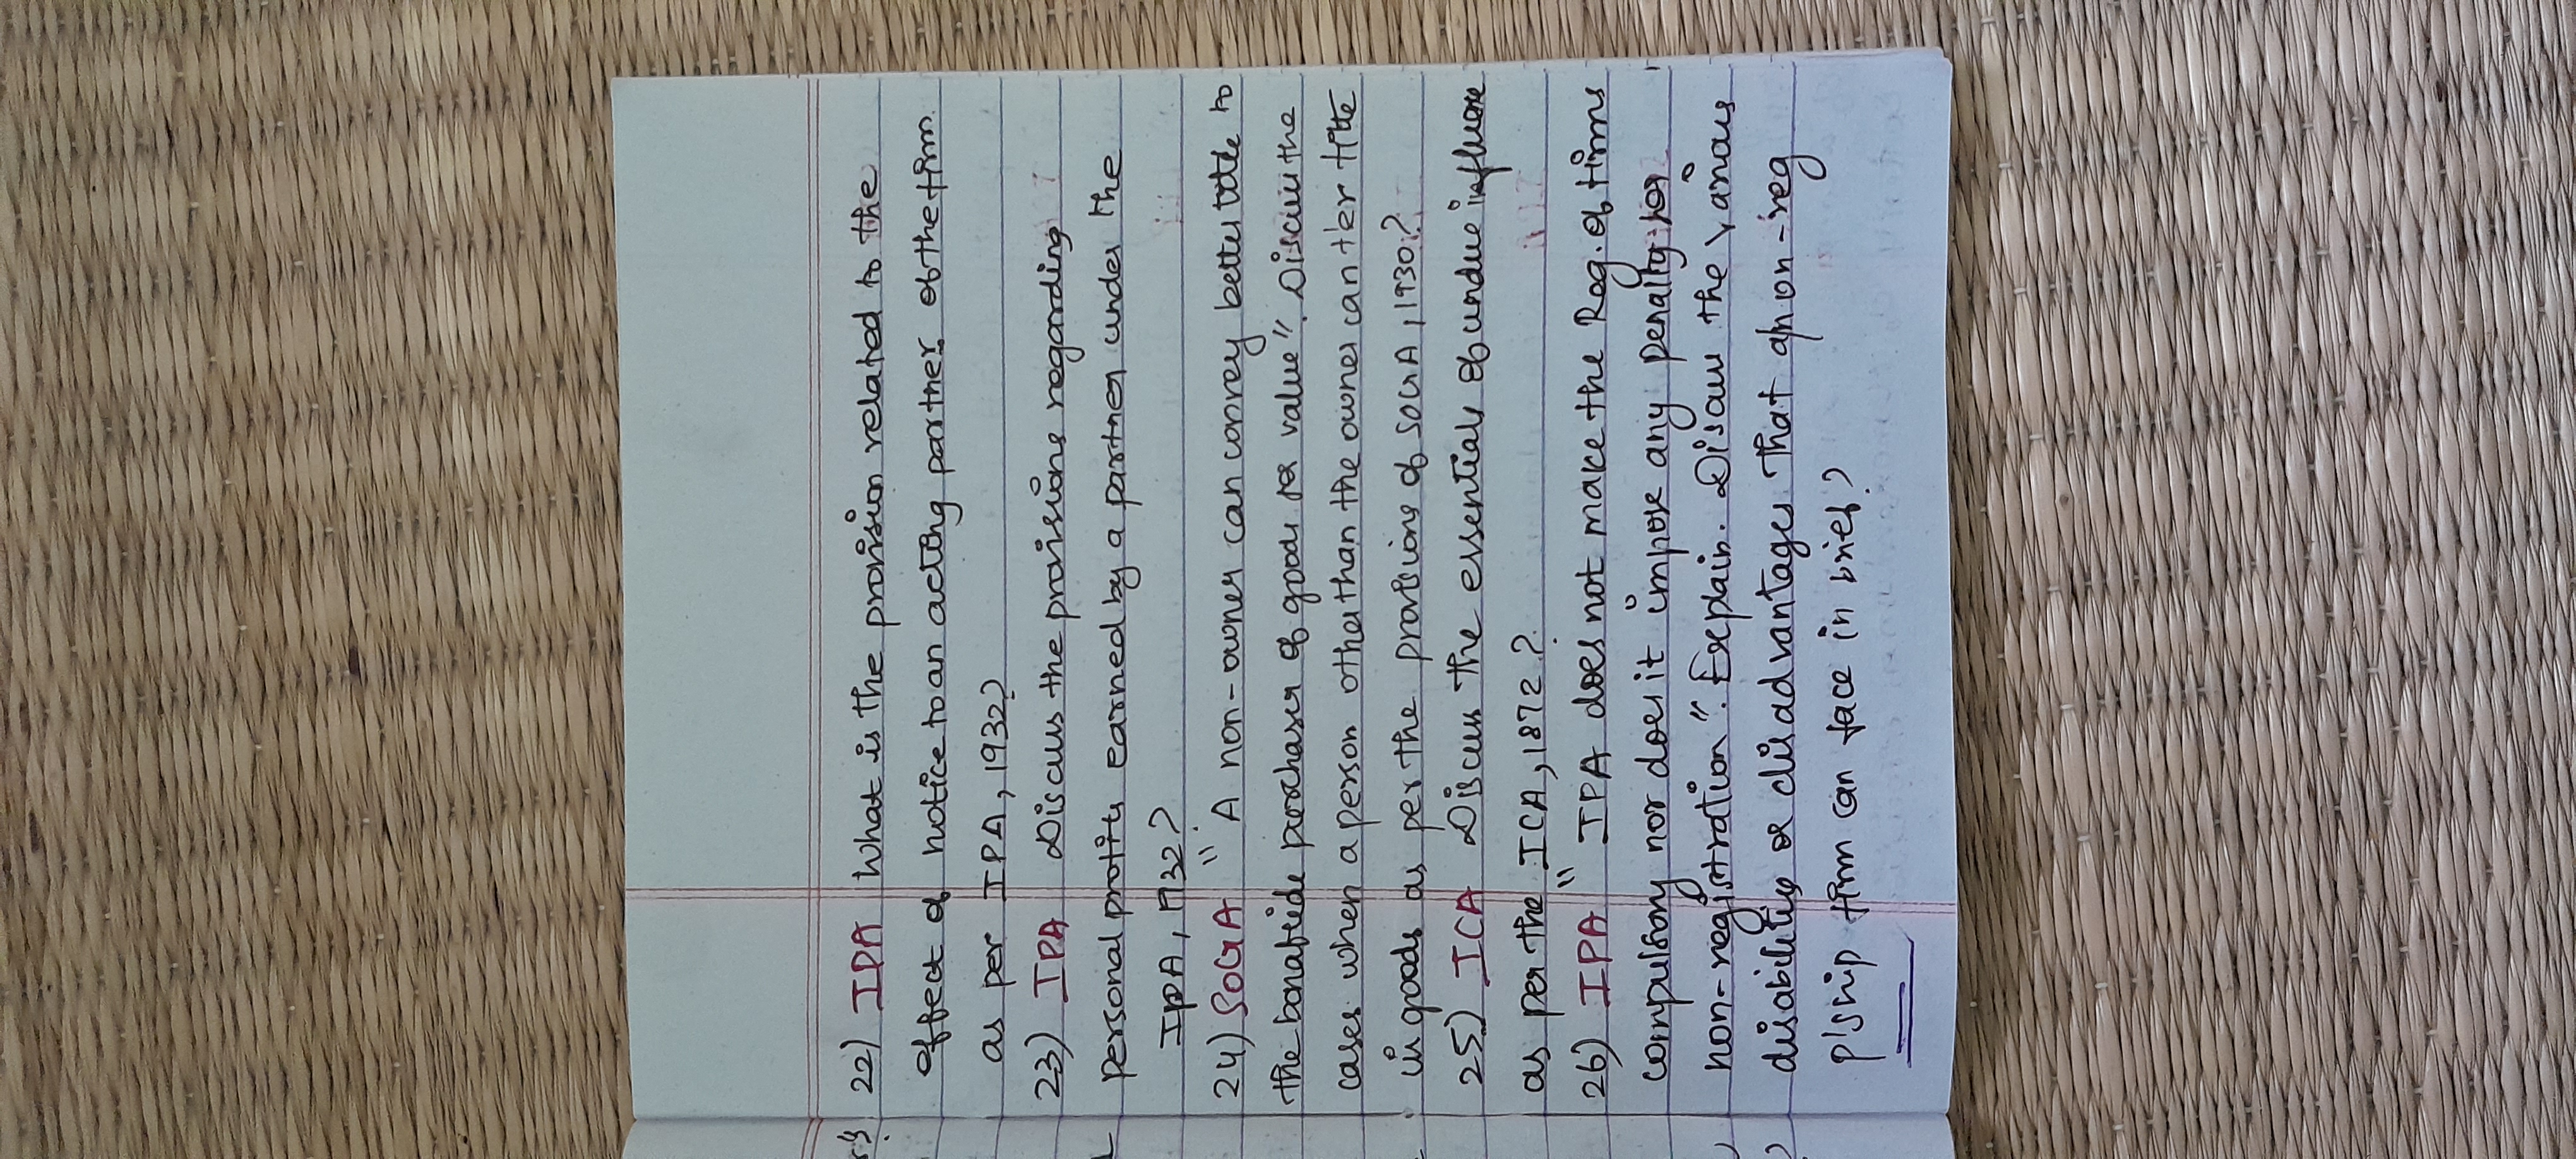 22) IPA What is the provision related to the
effect of notice to an acting partner of the firm.
as per IPA, 1932?
23) IPA Discuss the provisions regarding
personal profits earned by a partner under the
IPA, 1932?
24) SOGA "A non-owner can convey better title to
the bonafide purchaser of goods for value". Discuss the
cases when a person other than the owner can t'er title
in goods as per the provisions of SOGA, 1930?
25) ICA Discuss the essentials of undue influence
as per the ICA, 1872?
26) IPA "IPA does not make the Reg. of firms
compulsory nor does it impose any penalty for
non-registration". Explain. Discuss the various
disabilities or disadvantages that a non-reg
p'ship firm can face in brief?